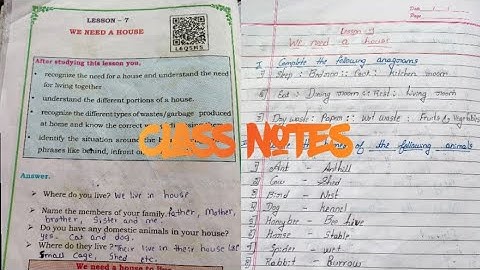 LESSON - 7
WE NEED A HOUSE
L6Q5MS
After studying this lesson you,
recognize the need for a house and understand the need
for living together
understand the different portions of a house.
recognize the different types of wastes/garbage produced
at home and know the correct
identify the situation around the
phrases like behind, infront
Answer.
Where do you live? We live in house
Name the members of your family. father, Mother,
brother, Sister and me.
Do you have any domestic animals in your house?
yes, Cat and dog.
Where do they live? Their live in their house
Small cage, Shed etc.
We need a house to
CLASS NOTES
Date
Page
Lesson
We need a house
I Complete the following anagrams
Sleep : Bedroom :: Cook : Kitchen room
Eat : Dining room :: Rest : Living room
Dry waste : Paper :: Wet waste : Fruits & Vegetables
of the following animals
Ant - Anthill
Cow - Shed
Bird - Nest
Dog - Kennel
Honeybee - Bee hive
Horse - Stable
Spider - wet
Rabbit - Burrow